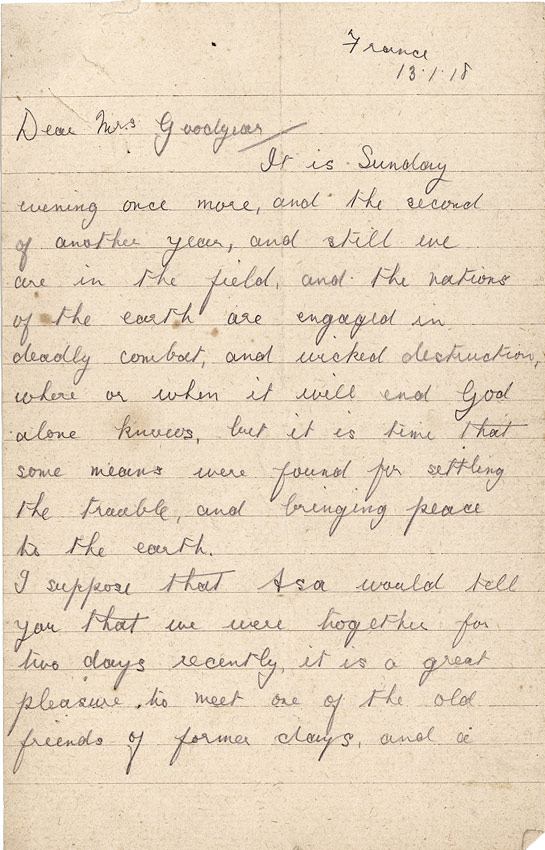 France
13.1.18
Dear Mrs Goodyear
It is Sunday
evening once more, and the second
of another year, and still we
are in the field, and the nations
of the earth are engaged in
deadly combat, and wicked destruction,
where or when it will end God
alone knows, but it is time that
some means were found for settling
the trouble, and bringing peace
to the earth.
I suppose that Asa would tell
you that we were together for
two days recently, it is a great
pleasure to meet one of the old
friends of former days, and a